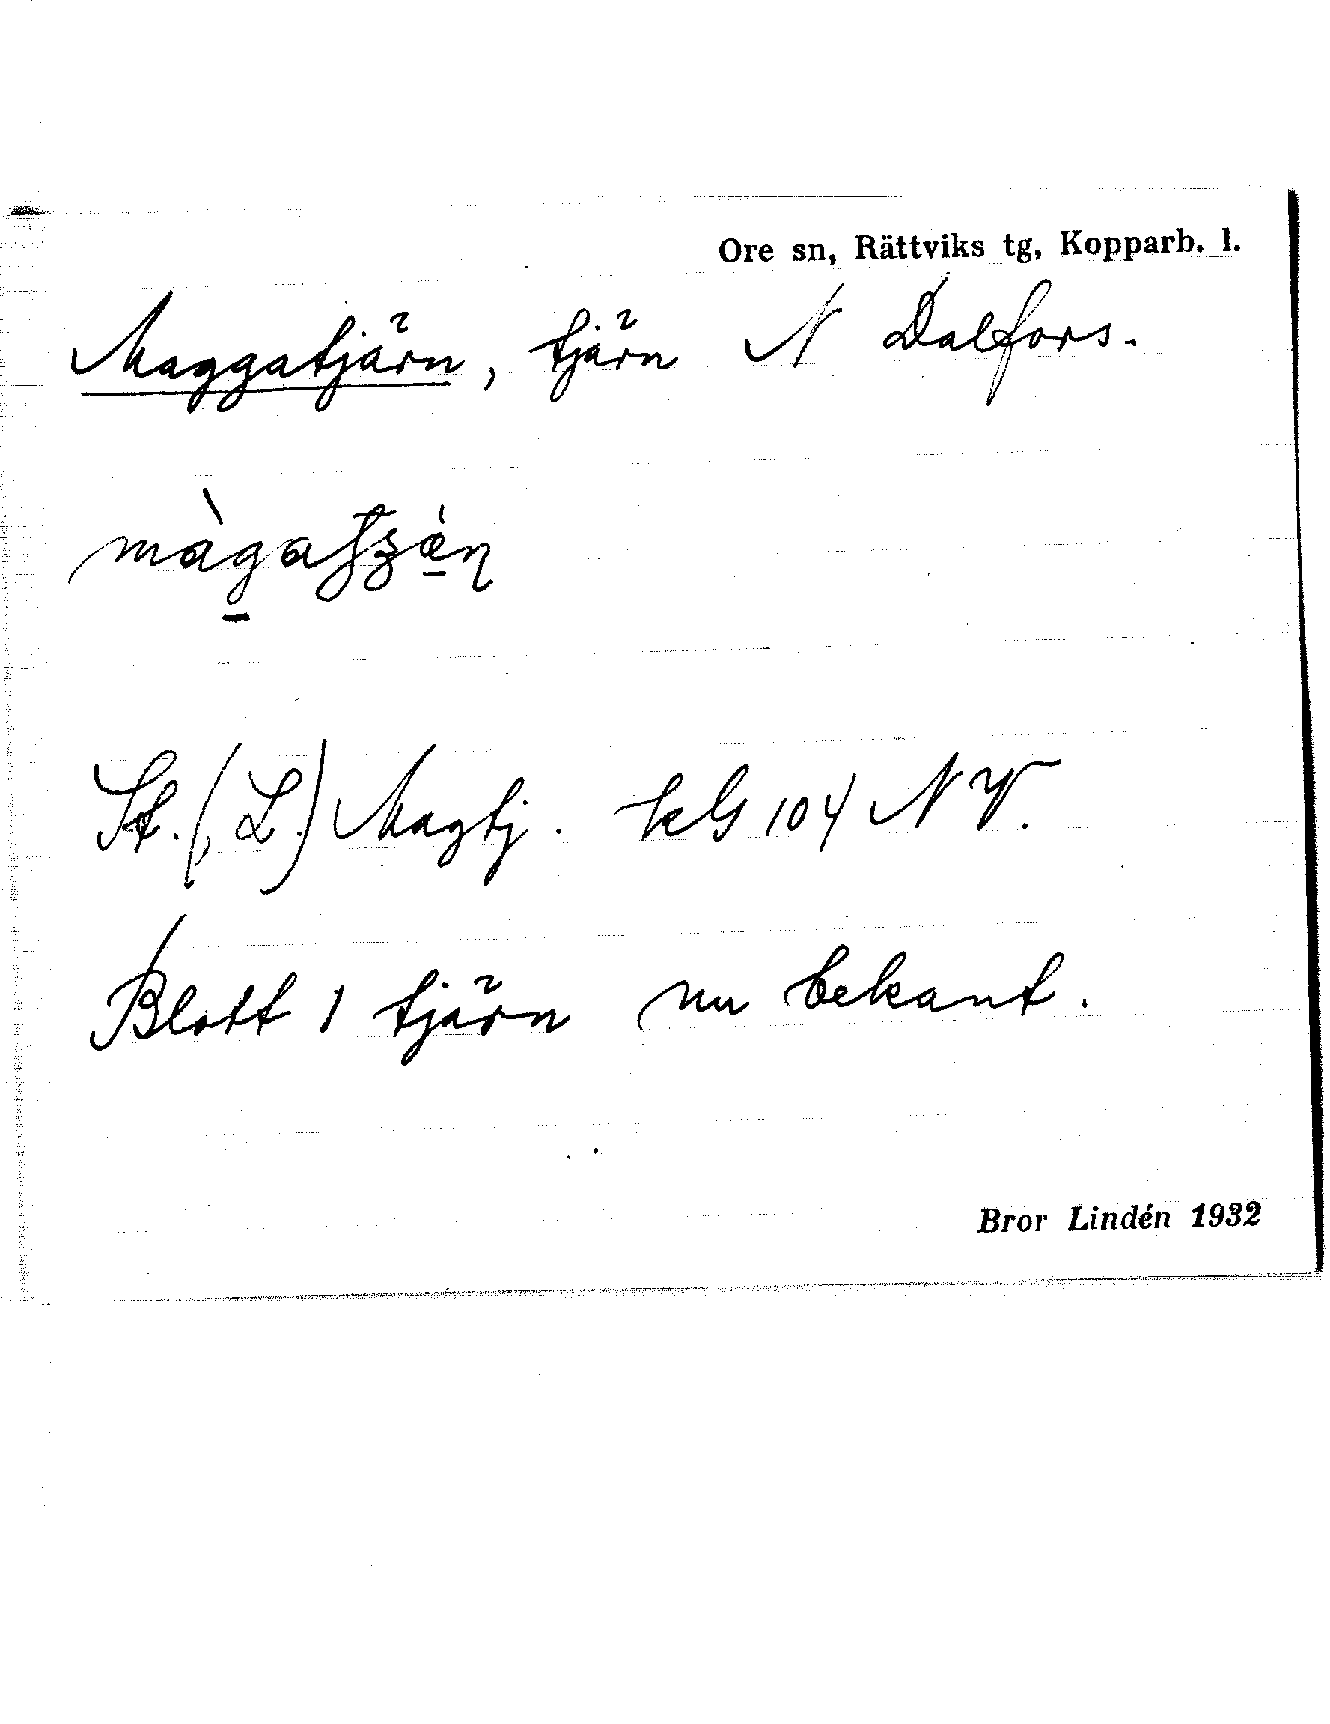 Ore sn, Rättviks tg, Kopparb. l.
Maggatjärn, tjärn N Dalfors.
St. (, L.) Magtj. kbl 104 NV.
Blott 1 tjärn nu bekant.
Bror Lindén 1932